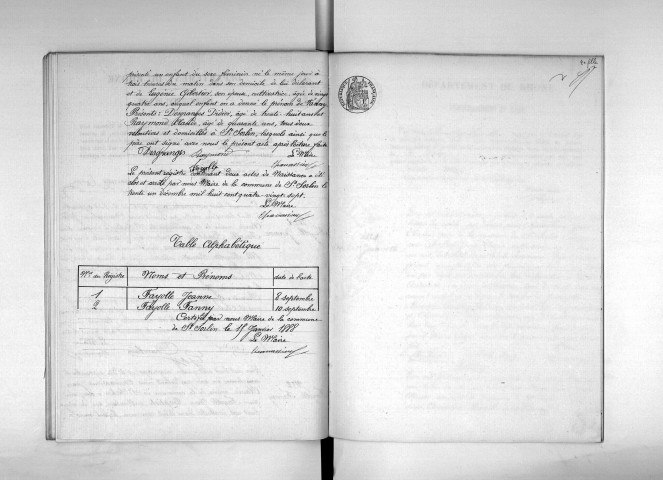 présenté un enfant du sexe féminin né le même jour à
trois heures du matin dans son domicile de lui déclarant
et de Eugénie Giberton son épouse, cultivatrice, âgée de vingt
quatre ans, auquel enfant on a donné le prénom de Fanny
Présents: Desgranges Didier, âgé de trente-huit ans et
Raymond Claude, âgé de quarante ans, tous deux
domiciliés à St Sorlin, lesquels ainsi que le
père ont signé avec nous le présent acte après lecture faite
Desgranges Raymond Le Maire
Fayolle
Le présent registre contenant deux actes de Naissances a été
clos et arrêté par nous Maire de la commune de St Sorlin le
trente un décembre mil huit cent quatre-vingt sept.
Le Maire
Table Alphabétique
Nos du Registre Noms et Prénoms date de l'acte
1 Fayolle Jeanne 2 septembre
2 Fayolle Fanny 10 septembre
Certifié par nous Maire de la commune
de St Sorlin le 15 Janvier 1888
Le Maire